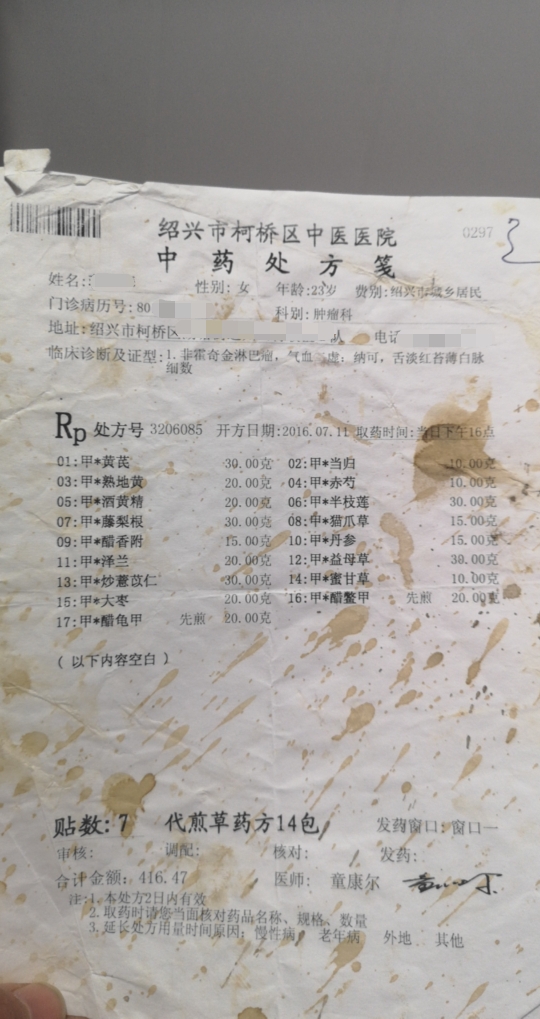 0297
绍兴市柯桥区中医医院
中药处方笺
姓名: 性别: 女 年龄:23岁 费别:绍兴市城乡居民
门诊病历号: 80 科别: 肿瘤科
地址: 绍兴市柯桥区 电话
临床诊断及证型: 1. 非霍奇金淋巴瘤, 气血 虚: 纳可, 舌淡红苔薄白脉
细数
Rp 处方号 3206085 开方日期:2016.07.11 取药时间:当日下午16点
01:甲*黄芪 30.00克 02:甲*当归 10.00克
03:甲*熟地黄 20.00克 04:甲*赤芍 10.00克
05:甲*酒黄精 20.00克 06:甲*半枝莲 30.00克
07:甲*藤梨根 30.00克 08:甲*猫爪草 15.00克
09:甲*醋香附 15.00克 10:甲*丹参 15.00克
11:甲*泽兰 20.00克 12:甲*益母草 30.00克
13:甲*炒薏苡仁 30.00克 14:甲*蜜甘草 10.00克
15:甲*大枣 20.00克 16:甲*醋鳖甲 先煎 20.00克
17:甲*醋龟甲 先煎 20.00克
( 以下内容空白 )
贴数: 7 代煎草药方14包 发药窗口: 窗口一
审核: 调配: 核对: 发药:
合计金额: 416.47 医师: 童康尔
注:1. 本处方2日内有效
2. 取药时请您当面核对药品名称、规格、数量
3. 延长处方用量时间原因: 慢性病 老年病 外地 其他